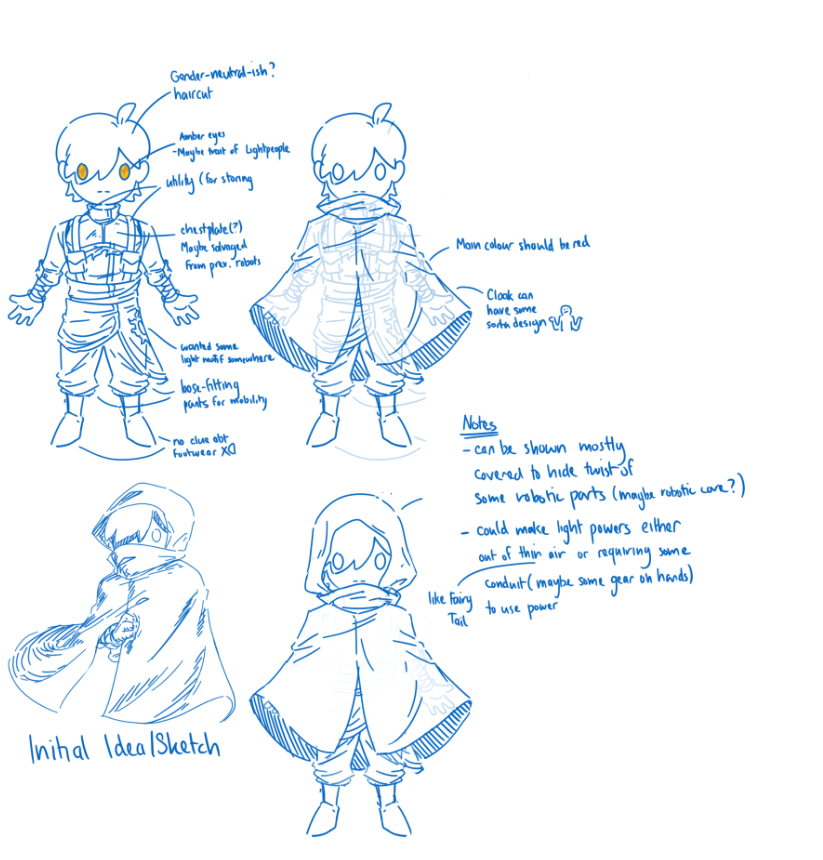 Gender-neutral-ish?
haircut
Amber eyes
-Maybe trait of Lightpeople
utility (for storing
chestplate(?)
Maybe salvaged
from prev. robots
wanted some
light motif somewhere
loose-fitting
pants for mobility
no clue abt
footwear XD
Main colour should be red
Cloak can
have some
sorta design
Notes
- can be shown mostly
covered to hide twist of
some robotic parts (maybe robotic core?)
- could make light powers either
out of thin air or requiring some
conduit (maybe some gear on hands)
to use power
like Fairy
Tail
Initial Idea/Sketch